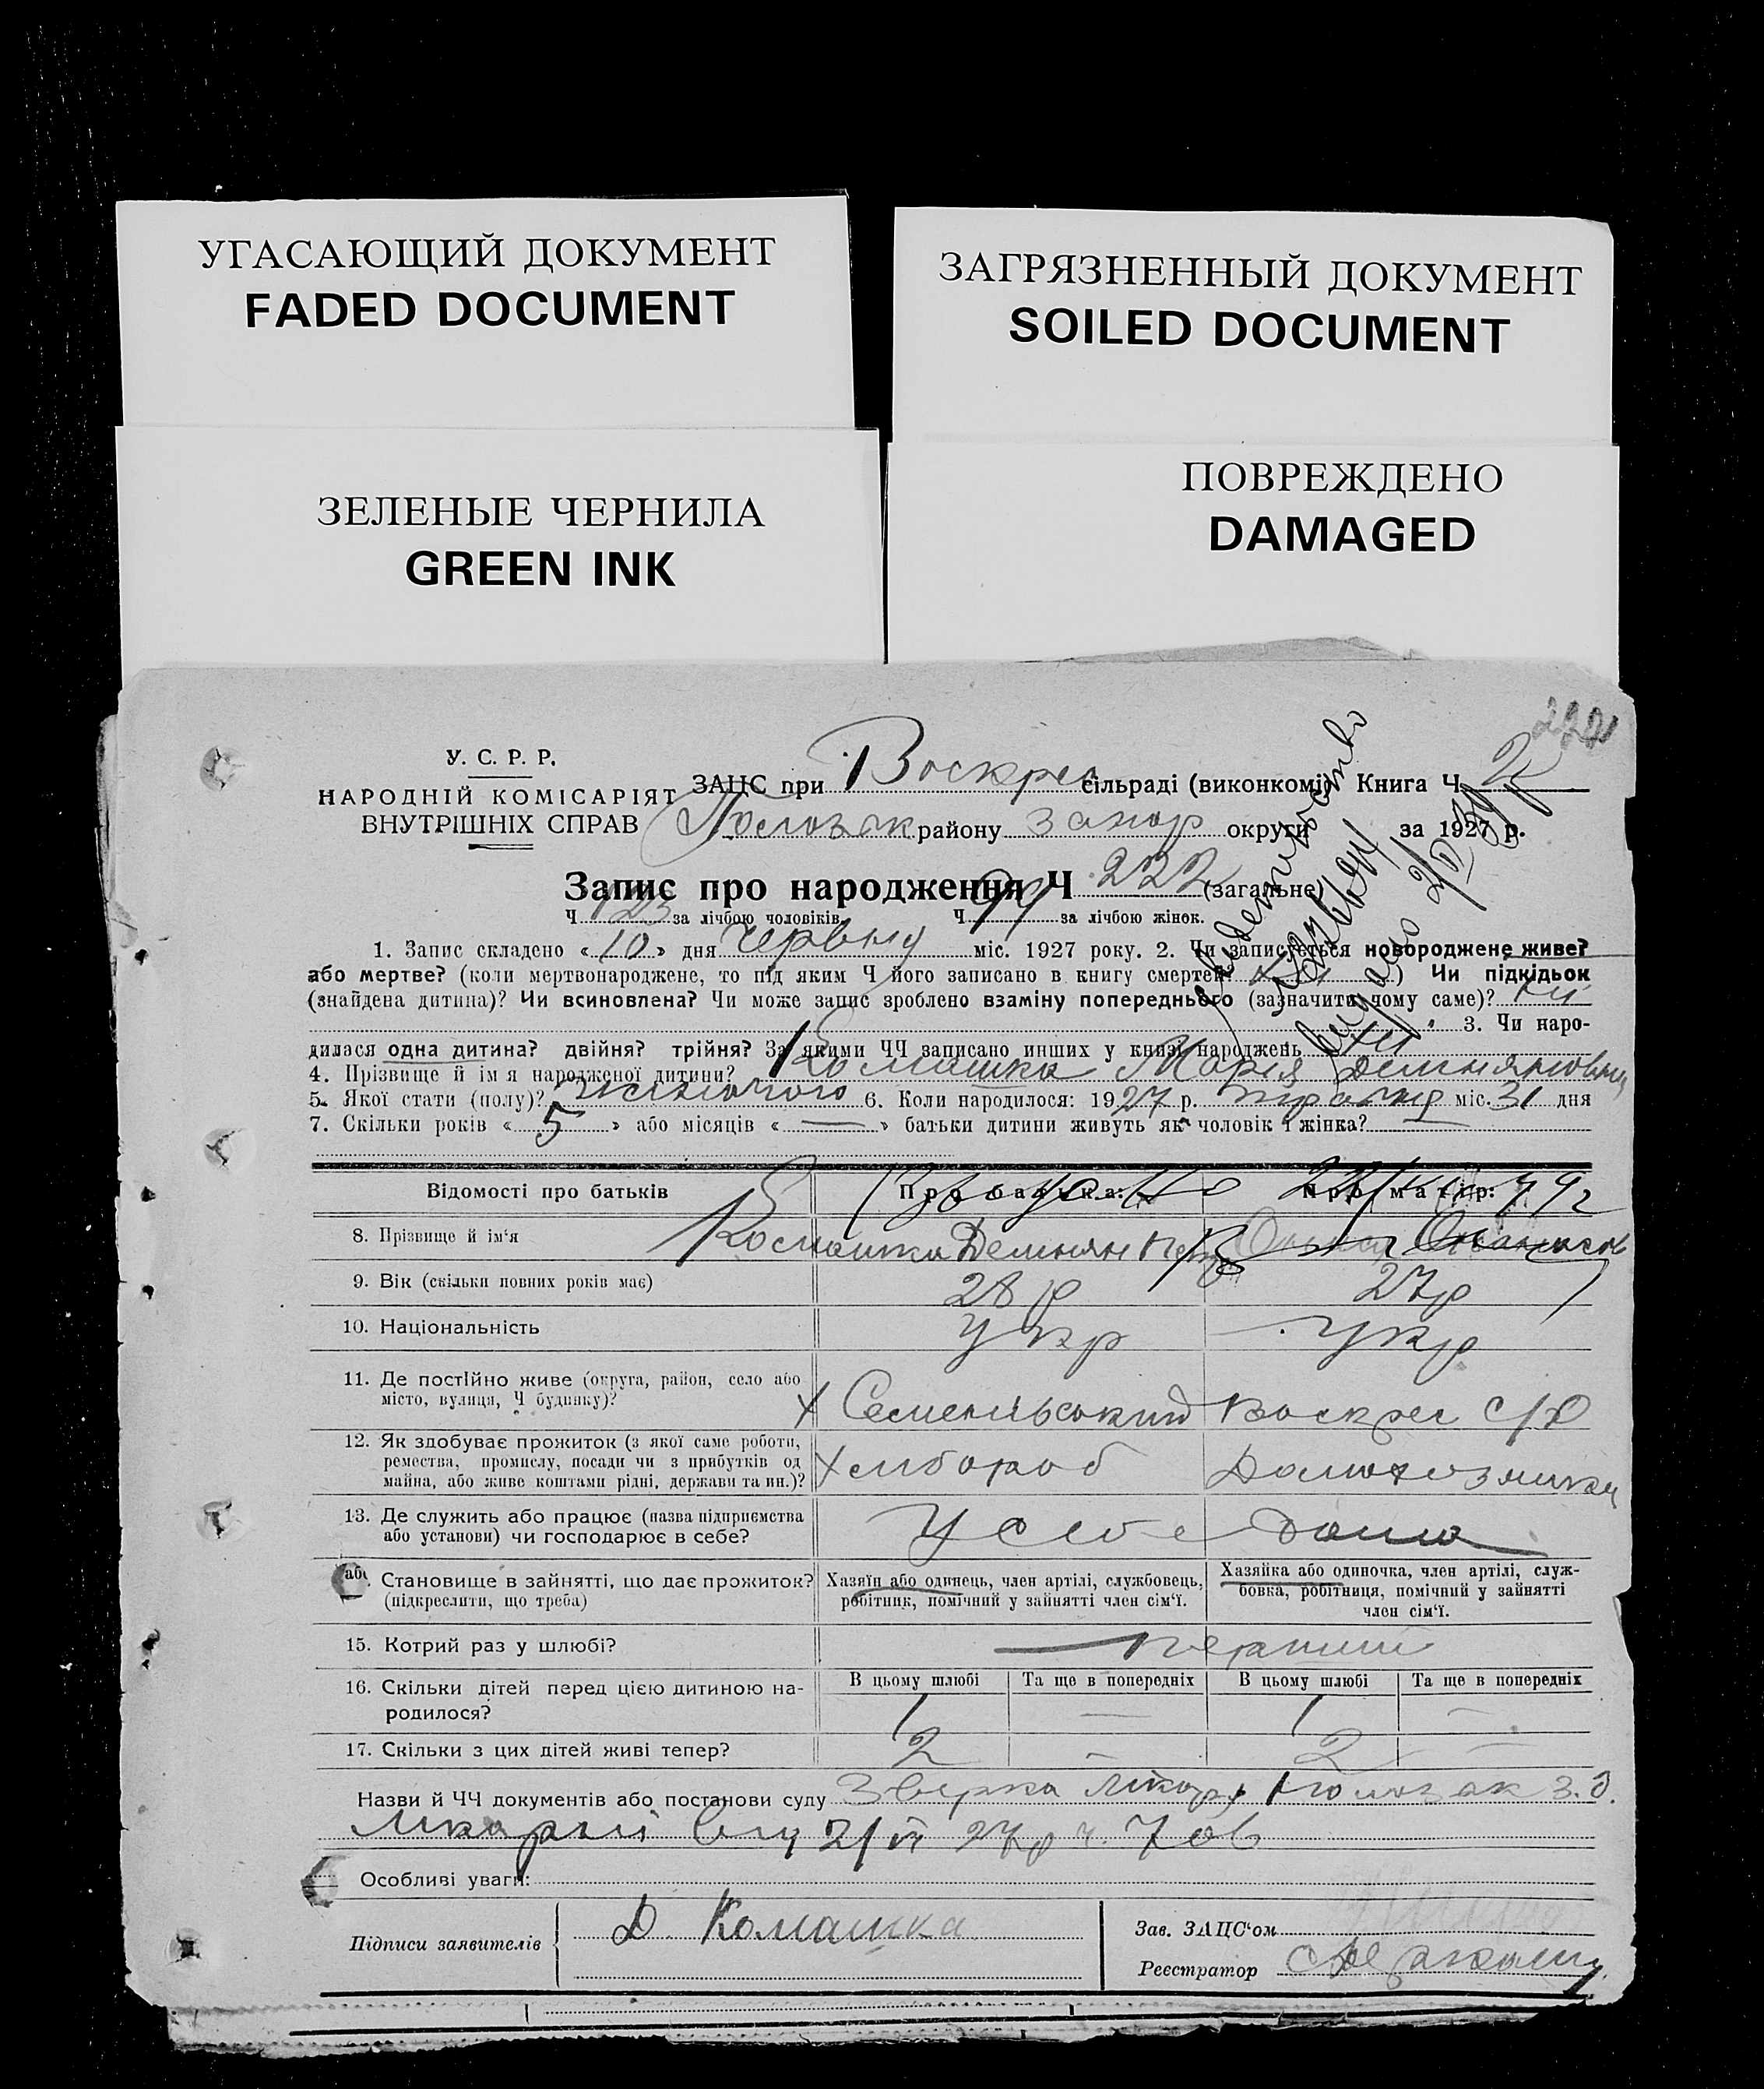 УГАСАЮЩИЙ ДОКУМЕНТ
FADED DOCUMENT
ЗАГРЯЗНЕННЫЙ ДОКУМЕНТ
SOILED DOCUMENT
ЗЕЛЕНЫЕ ЧЕРНИЛА
GREEN INK
ПОВРЕЖДЕНО
DAMAGED
У. С. Р. Р.
НАРОДНІЙ КОМІСАРІЯТ
ВНУТРІШНІХ СПРАВ
ЗАЦС при Воскрес сільраді (виконкомі) Книга Ч 2
району Запор округи за 1927 р.
Запис про народження Ч 222 (загальне)
Ч 123 за лічбою чоловіків. Ч 99 за лічбою жінок.
1. Запис складено «10» дня червня міс. 1927 року. 2. Чи записується новороджене живе?
або мертве? (коли мертвонароджене, то під яким Ч його записано в книгу смертей? ) Чи підкідьок
(знайдена дитина)? Чи всиновлена? Чи може запис зроблено взаміну попереднього (зазначити чому саме)? ні
3. Чи наро-
дилася одна дитина? двійня? трійня? За якими ЧЧ записано инших у книзі народжень
4. Прізвище й ім'я народженої дитини? Комашка Марія Демняновна
5. Якої стати (полу)? жіночого 6. Коли народилося: 1927 р. травня міс. 31 дня
7. Скільки років «5» або місяців «—» батьки дитини живуть як чоловік і жінка? —
Відомості про батьків
Про батька:
Про матір:
8. Прізвище й ім'я
Комашка Демнян
9. Вік (скільки повних років має)
28 р
27 р
10. Національність
Укр
Укр
11. Де постійно живе (округа, район, село або
місто, вулиця, Ч будинку)?
Воскрес с/р
12. Як здобуває прожиток (з якої саме роботи,
ремества, промислу, посади чи з прибутків од
майна, або живе коштами рідні, держави та ин.)?
Хлібороб
13. Де служить або працює (назва підприємства
або установи) чи господарює в себе?
У себе дома
Становище в зайнятті, що дає прожиток?
(підкреслити, що треба)
Хазяїн або одинець, член артілі, службовець,
робітник, помічний у зайнятті член сім'ї.
Хазяйка або одиночка, член артілі, служ-
бовка, робітниця, помічний у зайнятті
член сім'ї.
15. Котрий раз у шлюбі?
перший
16. Скільки дітей перед цією дитиною на-
родилося?
В цьому шлюбі
Та ще в попередніх
В цьому шлюбі
Та ще в попередніх
1 — 1 —
17. Скільки з цих дітей живі тепер?
2 — 2 —
Назви й ЧЧ документів або постанови суду
Особливі уваги:
Підписи заявителів
Д. Комашка
Зав. ЗАЦС'ом
Реєстратор